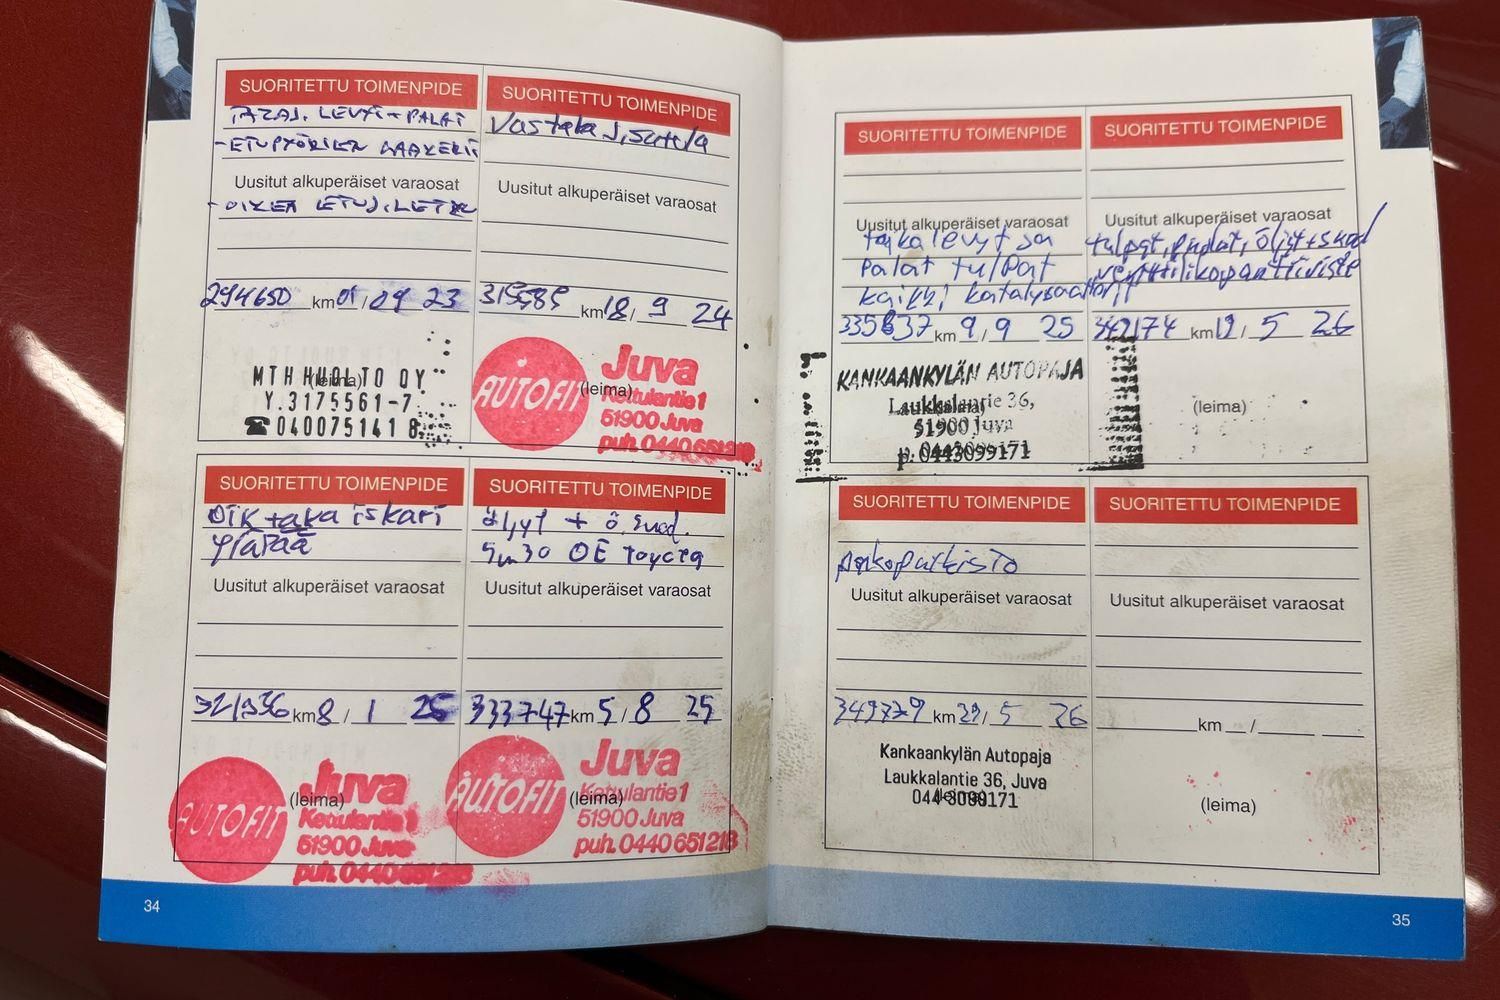 SUORITETTU TOIMENPIDE
LEVYT + PALAT
-ETUPYÖRIEN LAAKERIT
Uusitut alkuperäiset varaosat
- OIKEA ETUJ.LETKU
294650 km 01/09 23
(leima)
MTH HUOLTO OY
Y.3175561-7
☎0400751418
SUORITETTU TOIMENPIDE
Uusitut alkuperäiset varaosat
km 18/9 24
AUTOFIT
(leima)
Juva
Kettulantie 1
51900 Juva
puh. 0440 651218
SUORITETTU TOIMENPIDE
Oik taka iskari
yläpää
Uusitut alkuperäiset varaosat
321936 km 8/1 25
AUTOFIT
(leima)
Juva
Kettulantie 1
51900 Juva
puh. 0440 651218
SUORITETTU TOIMENPIDE
öljyt + ö.suod.
5w30 OE Toyota
Uusitut alkuperäiset varaosat
333747 km 5/8 25
AUTOFIT
(leima)
Juva
Kettulantie 1
51900 Juva
puh. 0440 651218
34
SUORITETTU TOIMENPIDE
Uusitut alkuperäiset varaosat
takalevyt ja
palat tulpat
kaikki katalysaattorit
km 9/9 25
KANKAANKYLÄN AUTOPAJA
Laukkalantie 36,
(leima)
51900 Juva
p. 0443099171
SUORITETTU TOIMENPIDE
Uusitut alkuperäiset varaosat
tulpat, puolat, öljyt + suod
venttiilikopantiiviste
342174 km 12/5 26
(leima)
SUORITETTU TOIMENPIDE
pakoputkisto
Uusitut alkuperäiset varaosat
km 29/5 26
Kankaankylän Autopaja
Laukkalantie 36, Juva
(leima)
SUORITETTU TOIMENPIDE
Uusitut alkuperäiset varaosat
km /
(leima)
35